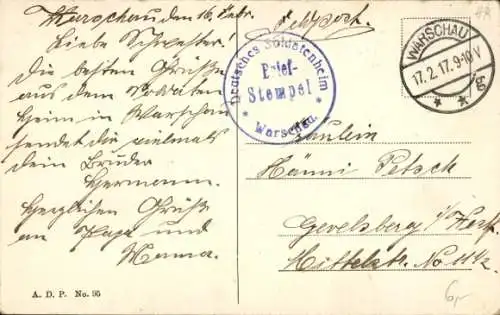 Warschau den 16. Febr.
Liebe Schwester!
Die besten Grüße
aus dem Soldaten
heim in Warschau
sendet dir vielmals
dein Bruder
Hermann.
Herzlichen Gruß
an Papa und
Mama.
A. D. P. No. 95
Feldpost.
Deutsches Soldatenheim
Brief-
Stempel
* Warschau. *
WARSCHAU
17.2.17.9-10V
* * b
Fräulein
Hänni Petsch
Gevelsberg i/Westf.
Mittelstr. No 11½
6,-